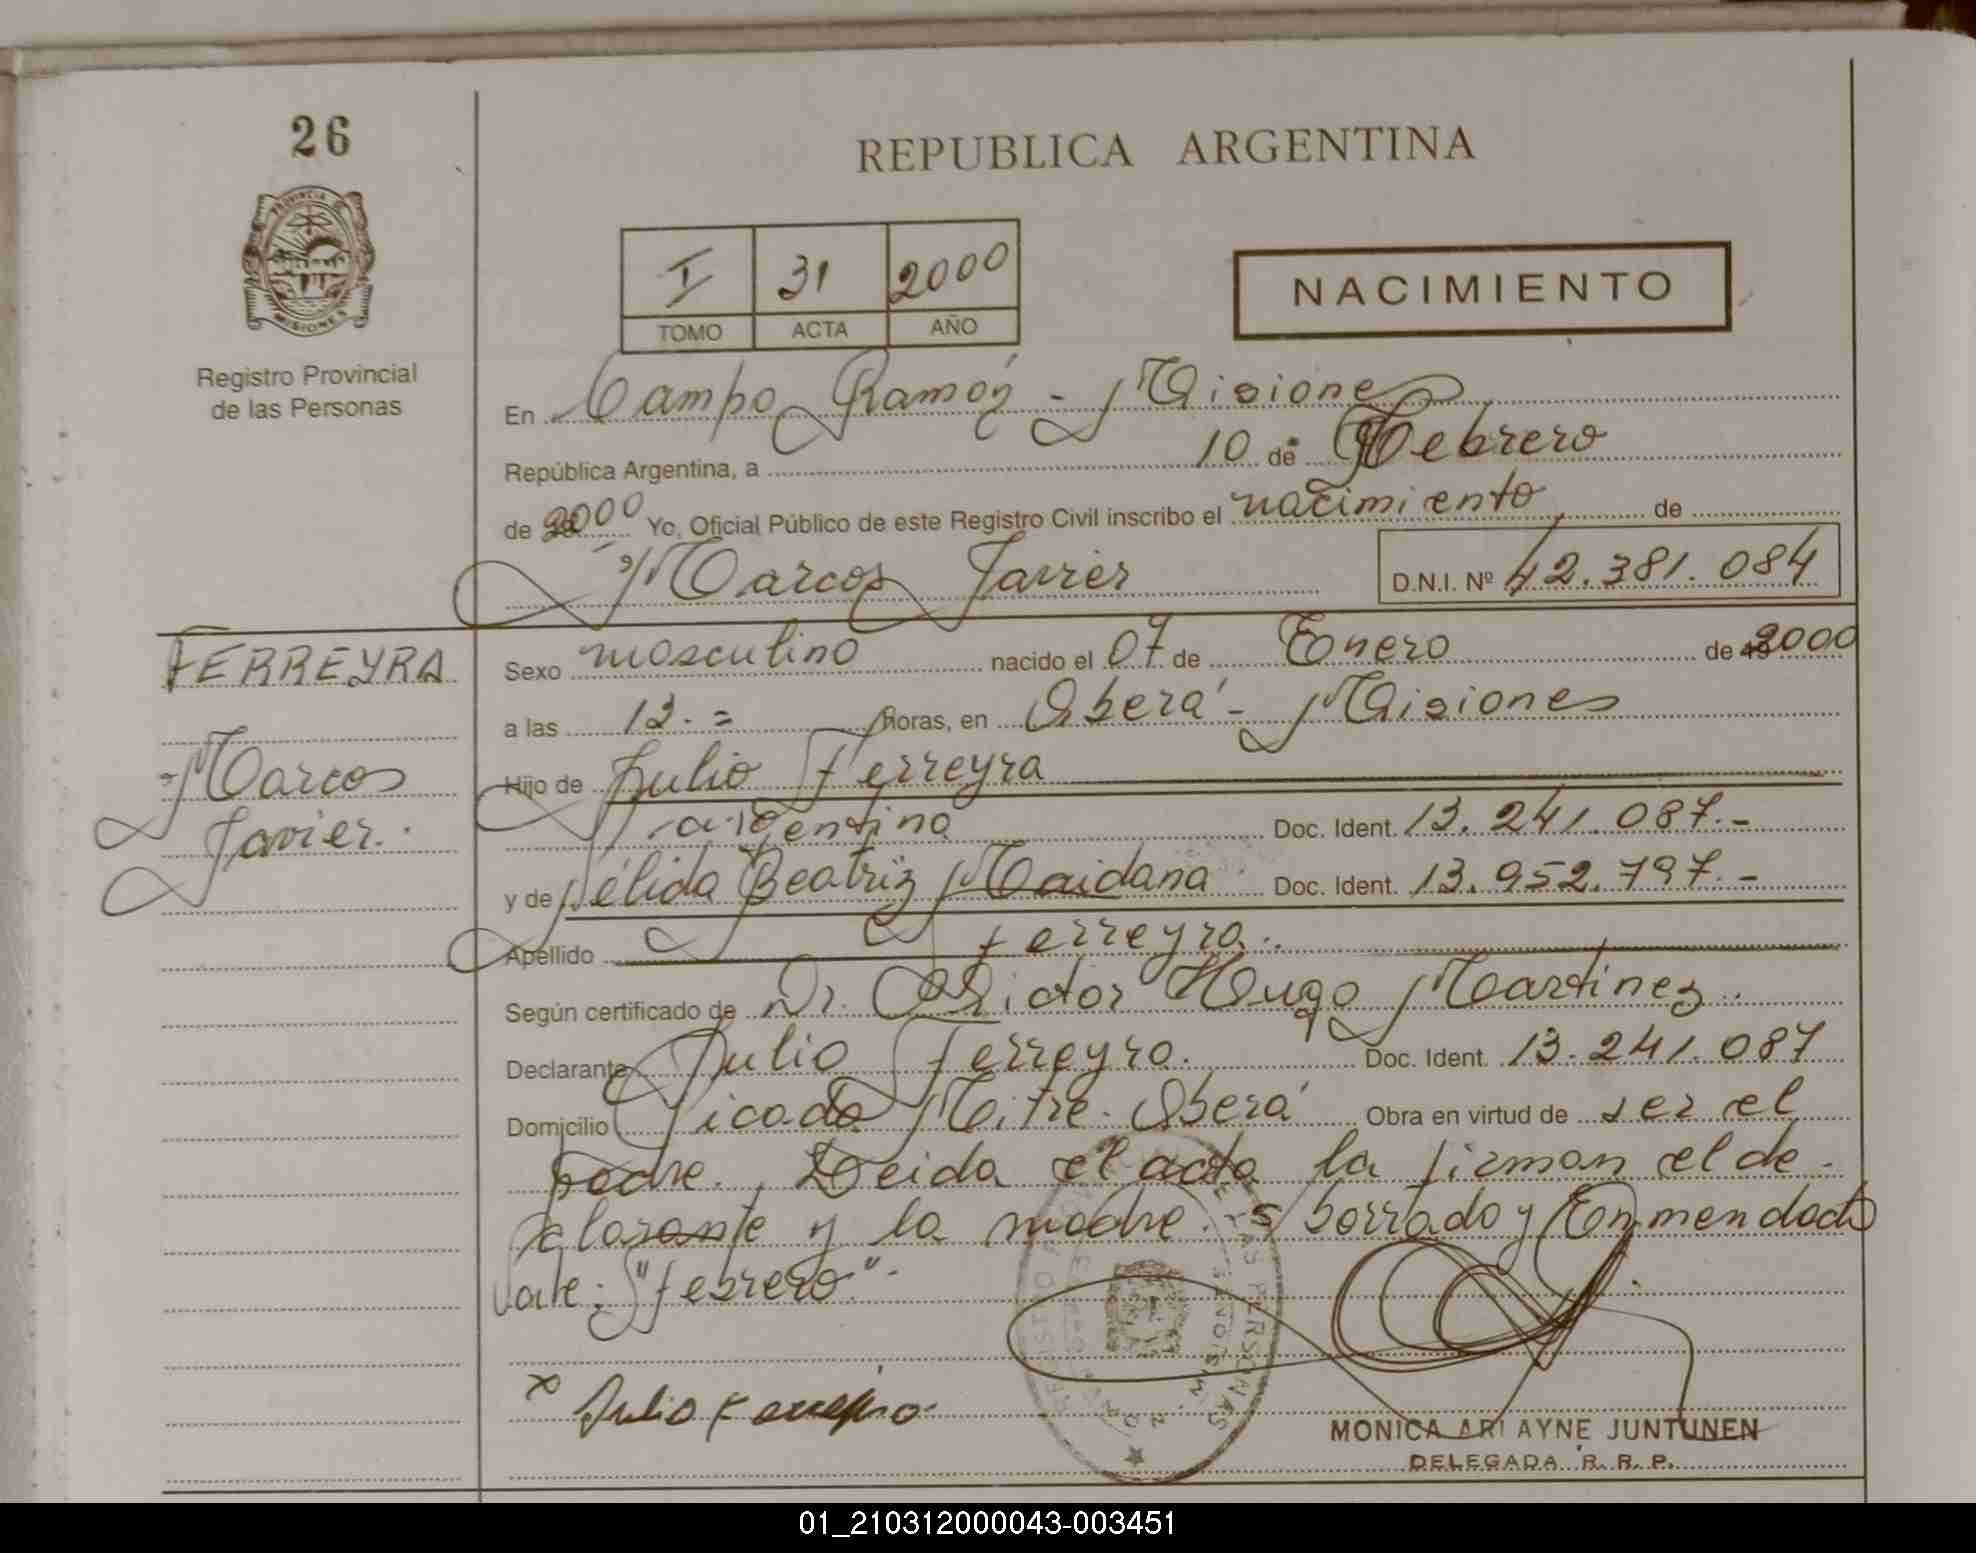 26
REPUBLICA ARGENTINA
PROVINCIA DE
MISIONES
I 31 2000
TOMO ACTA AÑO
NACIMIENTO
Registro Provincial
de las Personas
En Campo Ramón - Misiones
República Argentina, a 10 de Febrero
de 2000 Yo, Oficial Público de este Registro Civil inscribo el nacimiento de
Marcos Javier D.N.I. Nº 42.381.084
FERREYRA
Marcos
Javier.
Sexo masculino nacido el 07 de Enero de 2000
a las 12.= horas, en Oberá - Misiones
Hijo de Julio Ferreyra
argentino Doc. Ident. 13.241.087.-
y de Nélida Beatriz Maidana Doc. Ident. 13.952.797.-
Apellido Ferreyra.
Según certificado de Dr. Victor Hugo Martinez.
Declarante Julio Ferreyra. Doc. Ident. 13.241.087
Domicilio Picada Mitre. Oberá Obra en virtud de ser el
padre. Leida el acta la firman el de-
clarante y la madre. S/ borrado y Enmendado
Vale: "febrero".-
x Julio Ferreyra
MONICA ARLAYNE JUNTUNEN
DELEGADA R. R. P.
01_210312000043-003451